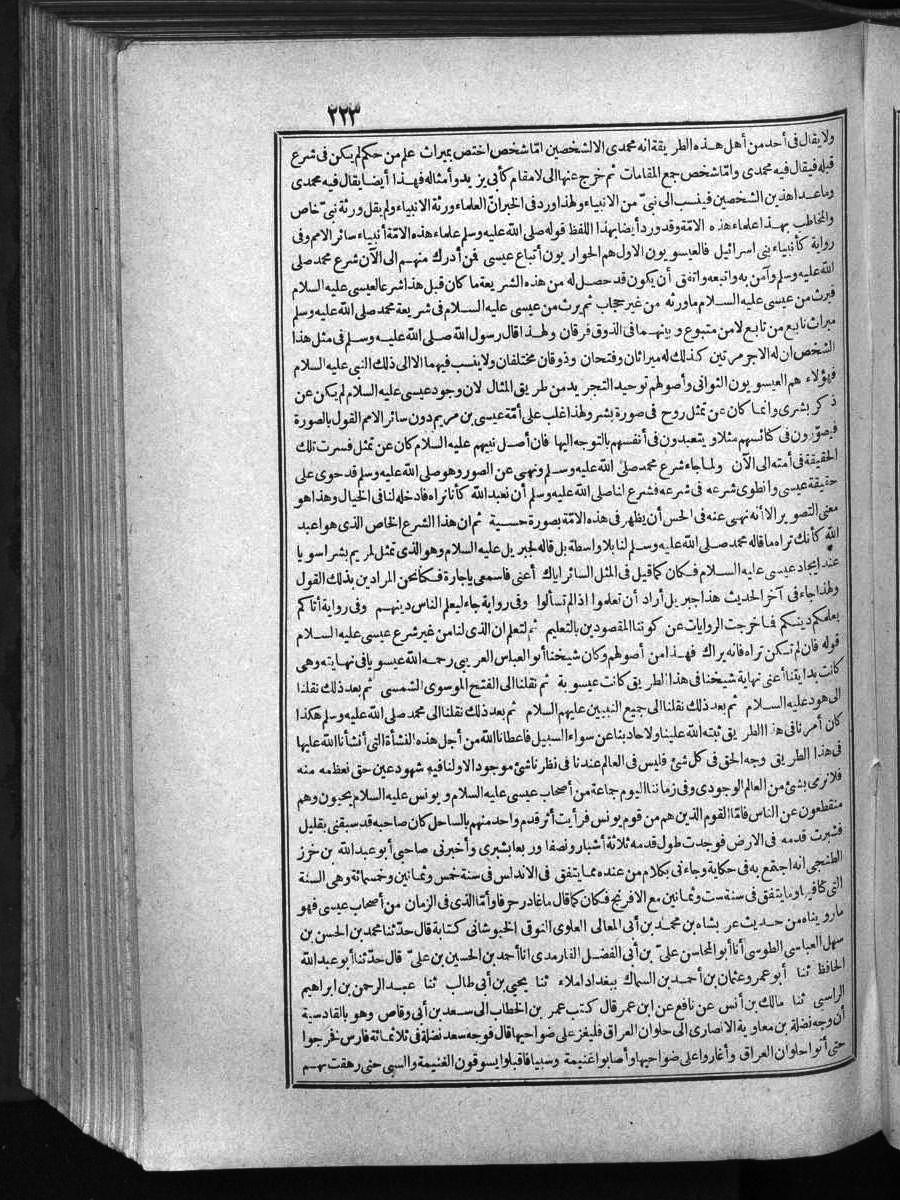 ٢٢٣
ولا يقال فى أحد من أهل هذه الطريقة انه محمدى الا لشخصين اما شخص اختص بميراث علم من حكم لم يكن فى شرع
قبله فيقال فيه محمدى واما شخص جمع المقامات ثم خرج عنها الى لا مقام كأبى يزيد وأمثاله فهذا أيضا يقال فيه محمدى
وما عدا هذين الشخصين فينسب الى نبىّ من الانبياء ولهذا ورد فى الخبر انّ العلماء ورثة الانبياء ولم يقل ورثة نبىّ خاص
والمخاطب بهذا علماء هذه الامّة وقد ورد أيضا بهذا اللفظ قوله صلى الله عليه وسلم علماء هذه الامّة أنبياء سائر الامم وفى
رواية كأنبياء بنى اسرائيل فالعيسويون الاول هم الحواريون أتباع عيسى فمن أدرك منهم الى الآن شرع محمد صلى
الله عليه وسلم وآمن به واتبعه واتفق أن يكون قد حصل له من هذه الشريعة ما كان قبل هذا شرعا لعيسى عليه السلام
فيرث من عيسى عليه السلام ماورثه من غير حجاب ثم يرث من عيسى عليه السلام فى شريعة محمد صلى الله عليه وسلم
ميراث تابع من تابع لا من متبوع وبينهما فى الذوق فرقان ولهذا قال رسول الله صلى الله عليه وسلم فى مثل هذا
الشخص ان له الاجر مرتين كذلك له ميراثان وفتحان وذوقان مختلفان ولا ينسب فيهما الا الى ذلك النبى عليه السلام
فهؤلاء هم العيسويون الثوانى وأصولهم توحيد التجريد من طريق المثال لان وجود عيسى عليه السلام لم يكن عن
ذكر بشرى وانما كان عن تمثل روح فى صورة بشر ولهذا غلب على أمّة عيسى بن مريم دون سائر الامم القول بالصورة
فيصوّرون فى كنائسهم مثلا ويتعبدون فى أنفسهم بالتوجه اليها فان أصل نبيهم عليه السلام كان عن تمثل فسرت تلك
الحقيقة فى أمته الى الآن ولما جاء شرع محمد صلى الله عليه وسلم ونهى عن الصور وهو صلى الله عليه وسلم قد حوى على
حقيقة عيسى وانطوى شرعه فى شرعه فشرع لنا صلى الله عليه وسلم أن نعبد الله كأنا نراه فادخله لنا فى الخيال وهذا هو
معنى التصوير الا أنه نهى عنه فى الحس أن يظهر فى هذه الامّة بصورة حسية ثم ان هذا الشرع الخاص الذى هو اعبد
الله كأنك تراه ما قاله محمد صلى الله عليه وسلم لنا بلا واسطة بل قاله لجبريل عليه السلام وهو الذى تمثل لمريم بشرا سويا
عند ايجاد عيسى عليه السلام فكان كما قيل فى المثل السائر اياك أعنى فاسمعى ياجارة فكنا نحن المرادين بذلك القول
ولهذا جاء فى آخر الحديث هذا جبريل أراد أن تعلموا اذا لم تسألوا وفى رواية جاء ليعلم الناس دينهم وفى رواية أتاكم
يعلمكم دينكم فما خرجت الروايات عن كوننا المقصودين بالتعليم ثم لتعلم ان الذى لنا من غير شرع عيسى عليه السلام
قوله فان لم تكن تراه فانه يراك فهذا من أصولهم وكان شيخنا أبو العباس العريبى رحمه الله عيسويا فى نهايته وهى
كانت بدايتنا أعنى نهاية شيخنا فى هذا الطريق كانت عيسوية ثم نقلنا الى الفتح الموسوى الشمسى ثم بعد ذلك نقلنا
الى هود عليه السلام ثم بعد ذلك نقلنا الى جميع النبيين عليهم السلام ثم بعد ذلك نقلنا الى محمد صلى الله عليه وسلم هكذا
كان أمرنا فى هذا الطريق ثبته الله علينا ولا حاد بنا عن سواء السبيل فاعطانا الله من أجل هذه النشأة التى أنشأنا الله عليها
فى هذا الطريق وجه الحق فى كل شئ فليس فى العالم عندنا فى نظرنا شئ موجود الا ولنا فيه شهود عين حق نعظمه منه
فلا نرمى بشئ من العالم الوجودى وفى زماننا اليوم جماعة من أصحاب عيسى عليه السلام ويونس عليه السلام يحيون وهم
منقطعون عن الناس فامّا القوم الذين هم من قوم يونس فرأيت أثر قدم واحد منهم بالساحل كان صاحبه قد سبقنى بقليل
فشبرت قدمه فى الارض فوجدت طول قدمه ثلاثة أشبار ونصفا وربعا بشبرى وأخبرنى صاحبى أبو عبد الله بن خرز
الطنجى انه اجتمع به فى حكاية وجاءنى بكلام من عنده مما يتفق فى الاندلس فى سنة خمس وثمانين وخمسمائة وهى السنة
التى كنا فيها وما يتفق فى سنة ست وثمانين مع الافرنج فكان كما قال ماغادر حرفا وأمّا الذى فى الزمان من أصحاب عيسى فهو
مارويناه من حديث عربشاه بن محمد بن أبى المعالى العلوى النوقى الخبوشانى كتابة قال حدّثنا محمد بن الحسن بن
سهل العباسى الطوسى أنا أبو المحاسن علىّ بن أبى الفضل الفارمدى انا أحمد بن الحسين بن علىّ قال حدّثنا أبو عبد الله
الحافظ ثنا أبو عمرو عثمان بن أحمد بن السماك ببغداد املاء ثنا يحيى بن أبى طالب ثنا عبد الرحمن بن ابراهيم
الراسبى ثنا مالك بن أنس عن نافع عن ابن عمر قال كتب عمر بن الخطاب الى سعد بن أبى وقاص وهو بالقادسية
أن وجه نضلة بن معاوية الانصارى الى حلوان العراق فليغز على ضواحيها قال فوجه سعد نضلة فى ثلاثمائة فارس فخرجوا
حتى أتوا حلوان العراق وأغاروا على ضواحيها وأصابوا غنيمة وسبيا فاقبلوا يسوقون الغنيمة والسبى حتى رهقت بهم